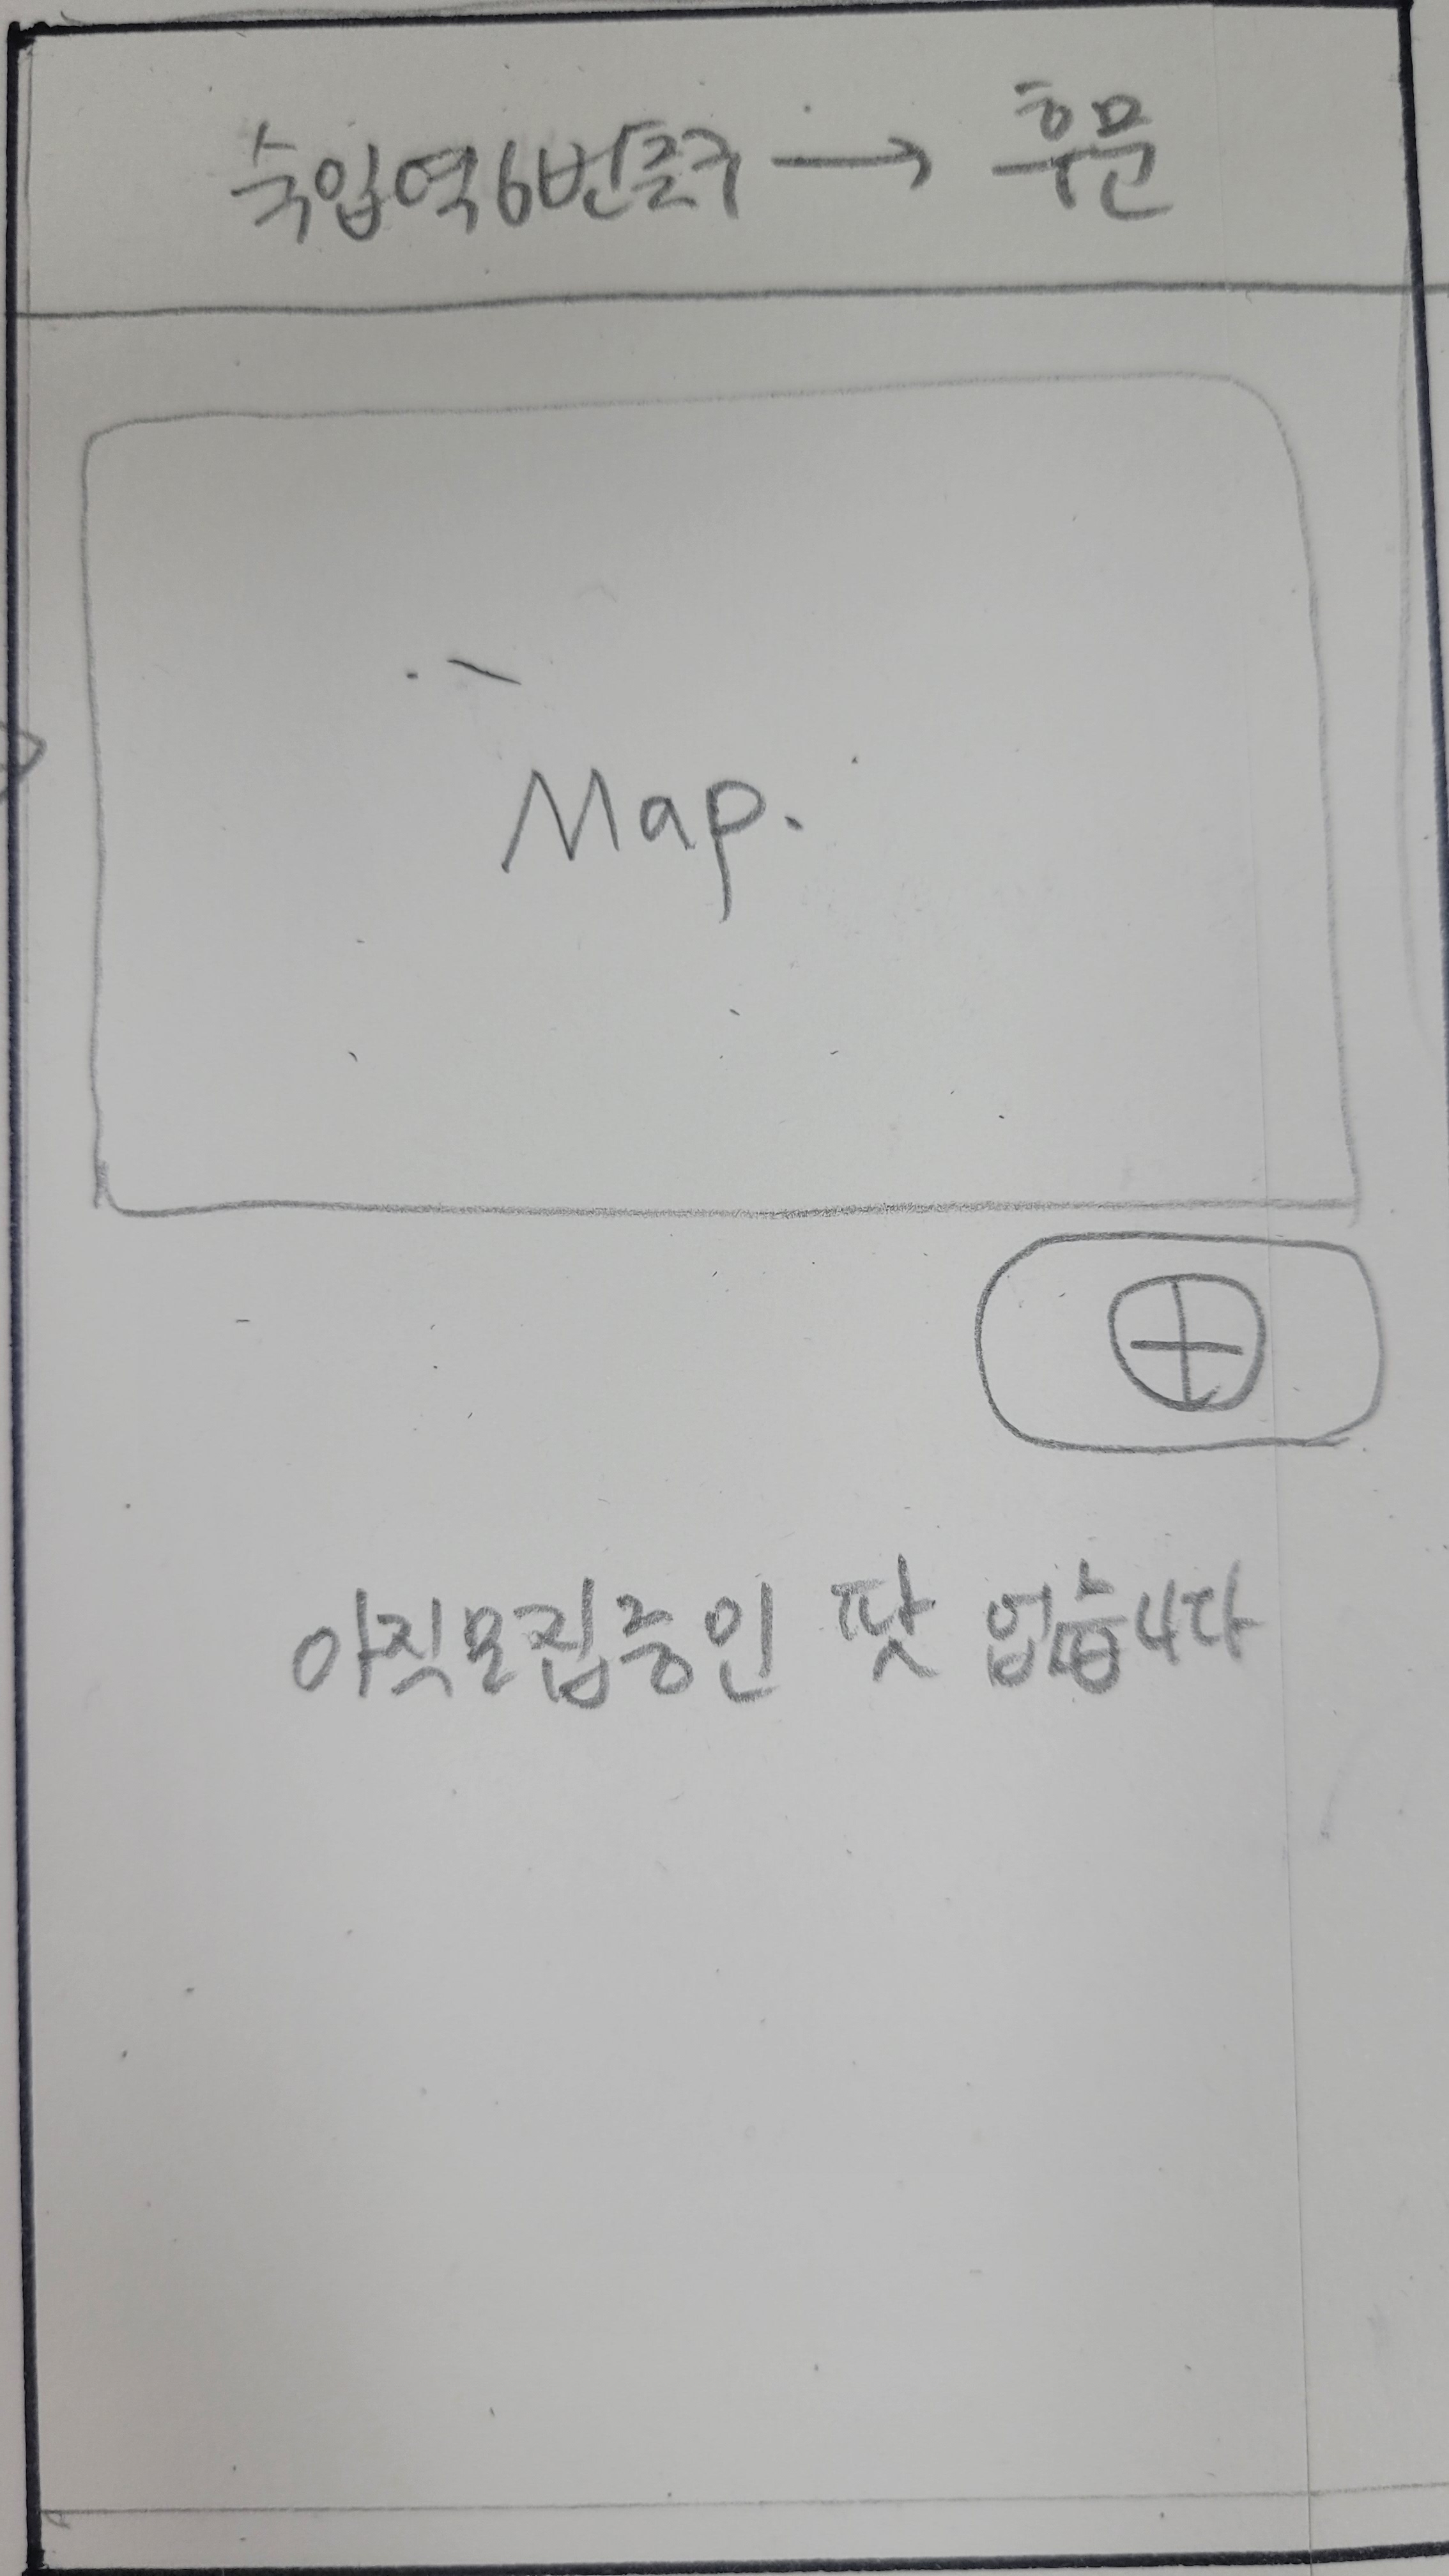 숙입역6번출구 → 후문
Map.
아직모집중인 팟 없습니다